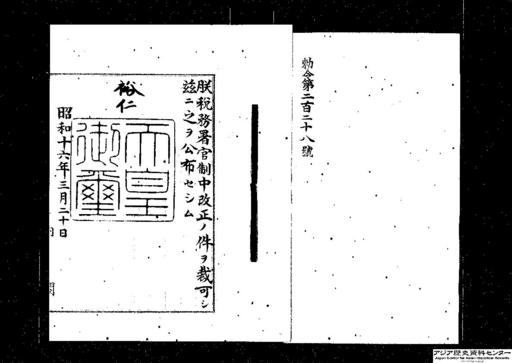 勅令第二百二十八號
朕税務署官制中改正ノ件ヲ裁可シ
茲ニ之ヲ公布セシム
裕仁
天皇御璽
昭和十六年三月二十日
内閣
アジア歴史資料センター
Japan Center for Asian Historical Records